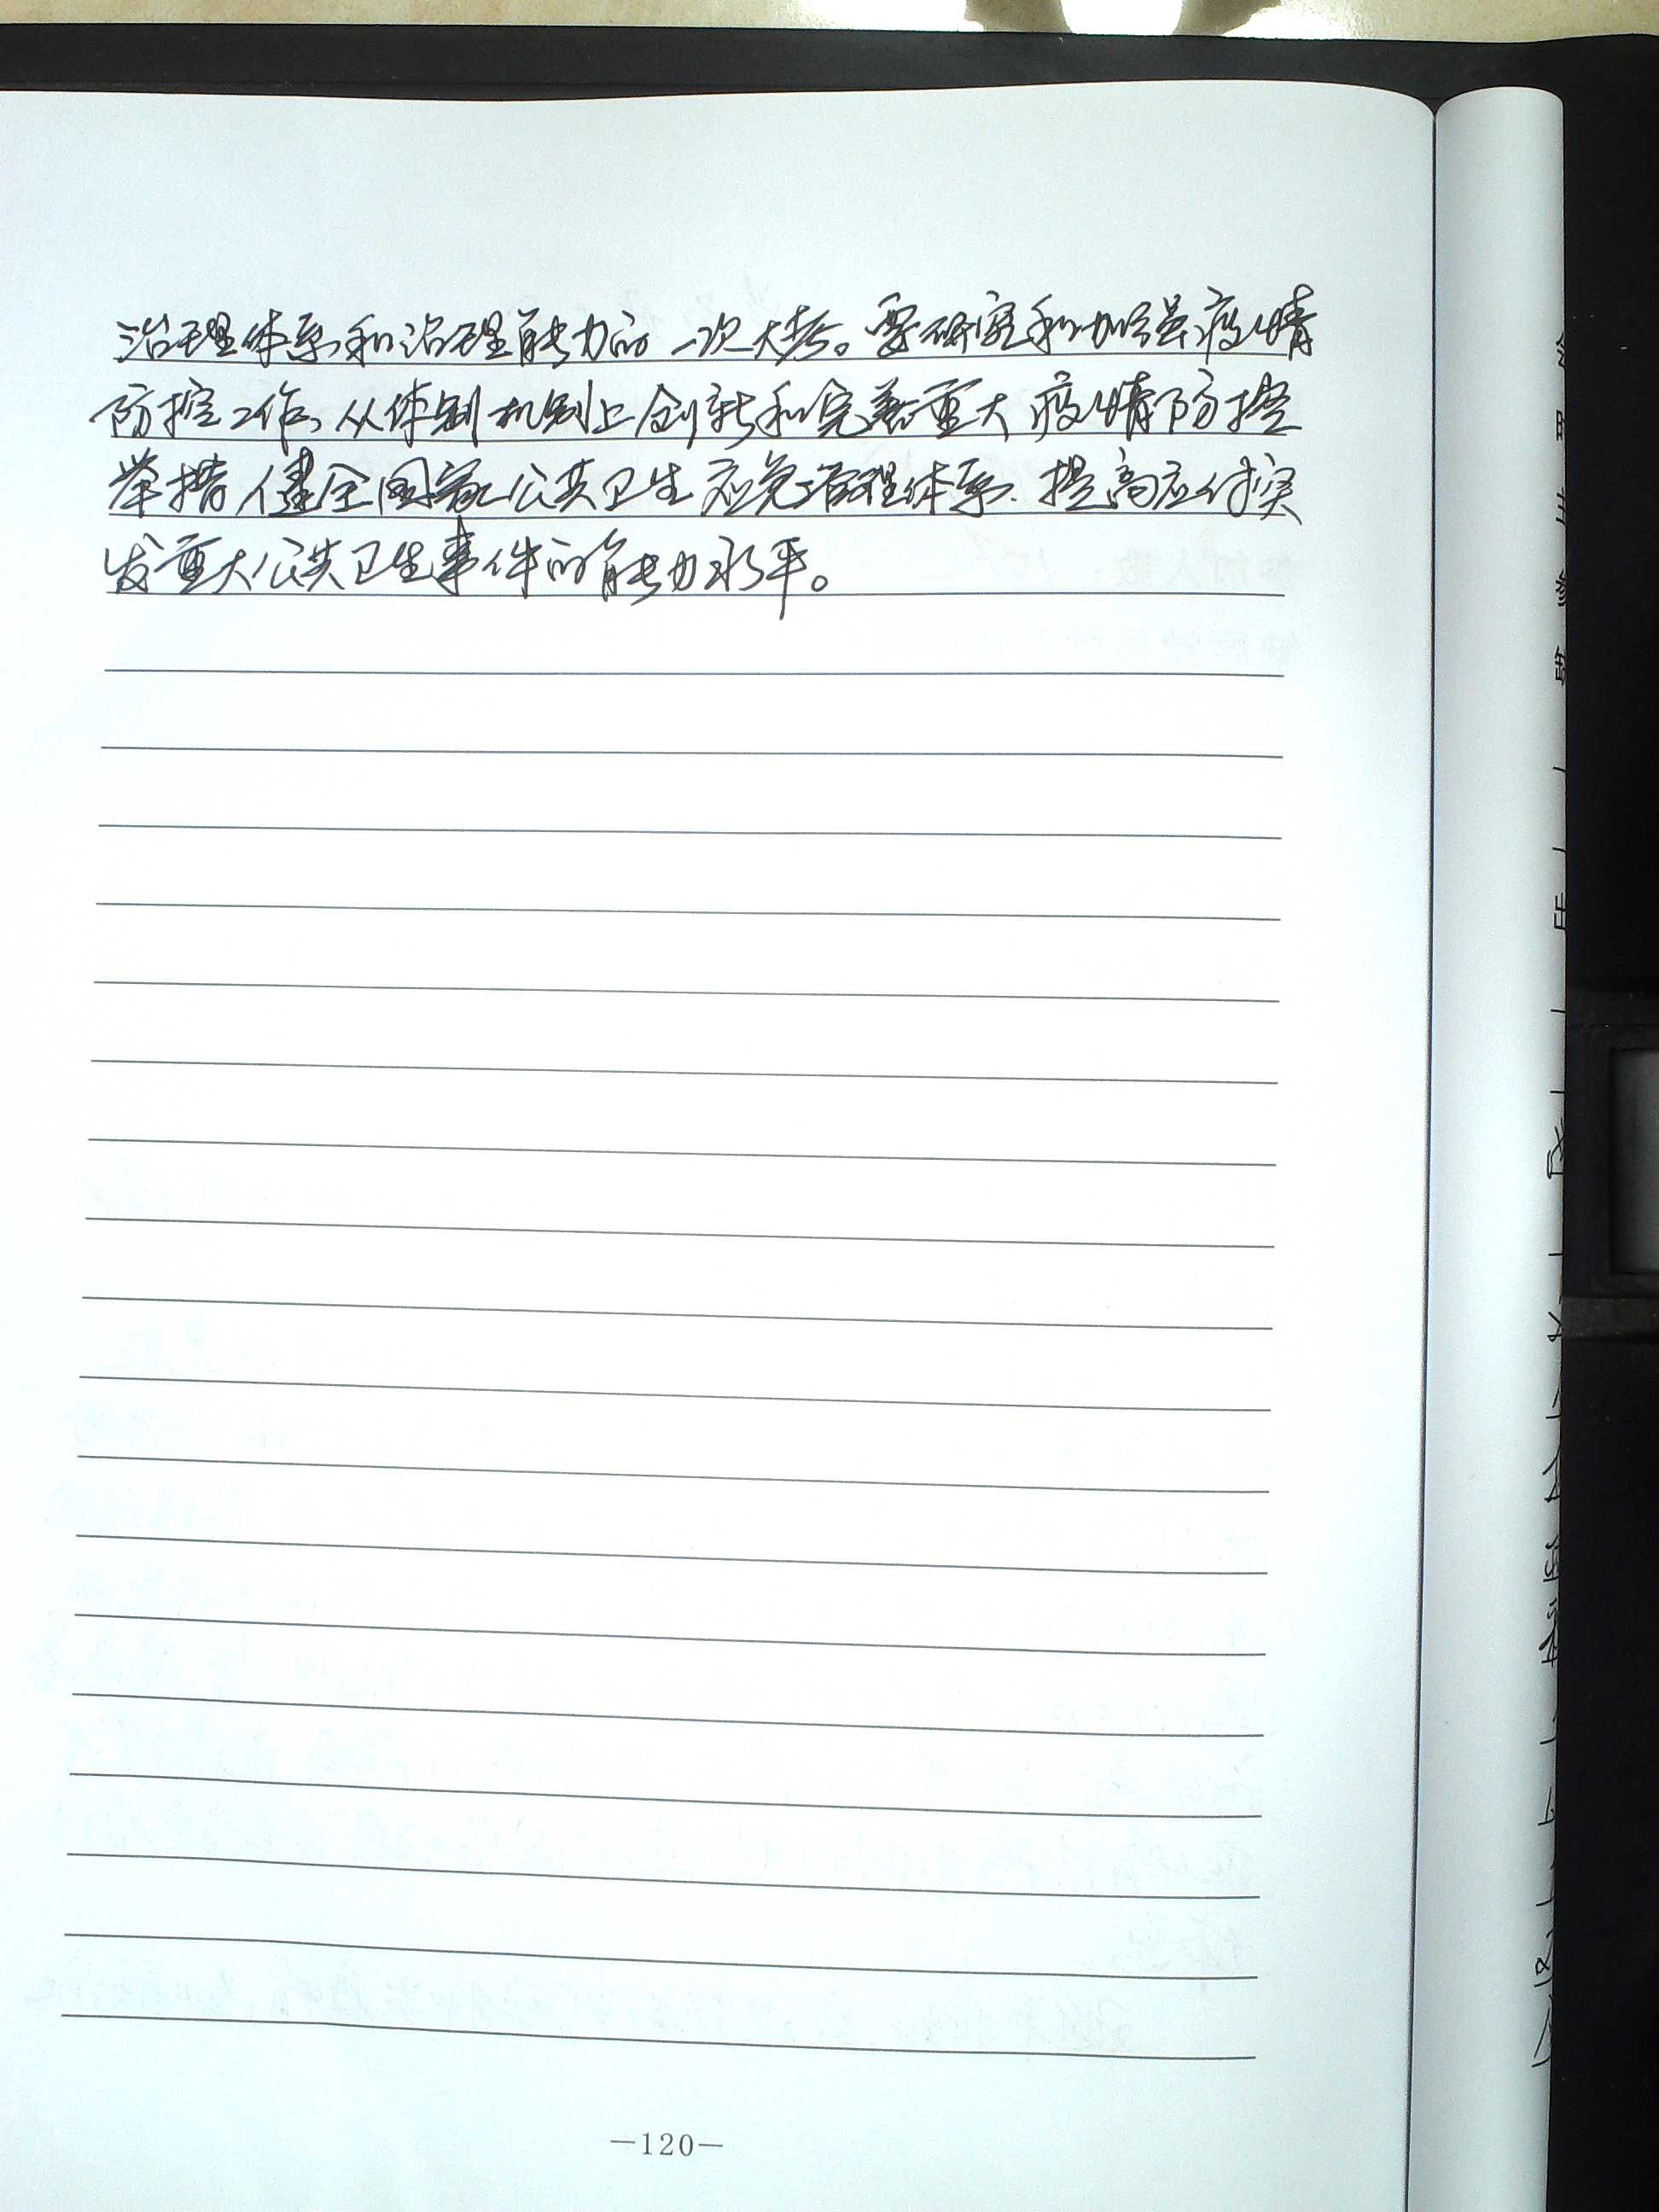 治理体系和治理能力的一次大考。要研究和加强疫情
防控工作，从体制机制上创新和完善重大疫情防控
举措，健全国家公共卫生应急管理体系、提高应付突
发重大公共卫生事件的能力水平。
—120—